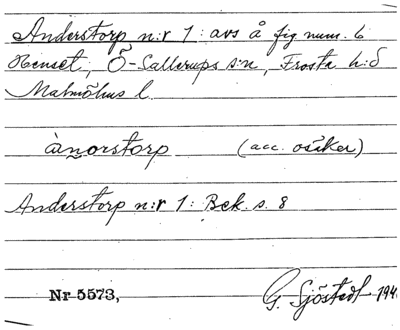 Anderstorp n:r 1: avs å fig num. 6
Ö-Sallerups s:n, Frosta h:d
Malmöhus l.
ànorstorp (acc. osäker)
Anderstorp n:r 1: Bek. s. 8
Nr 5573, G. Sjöstedt 194